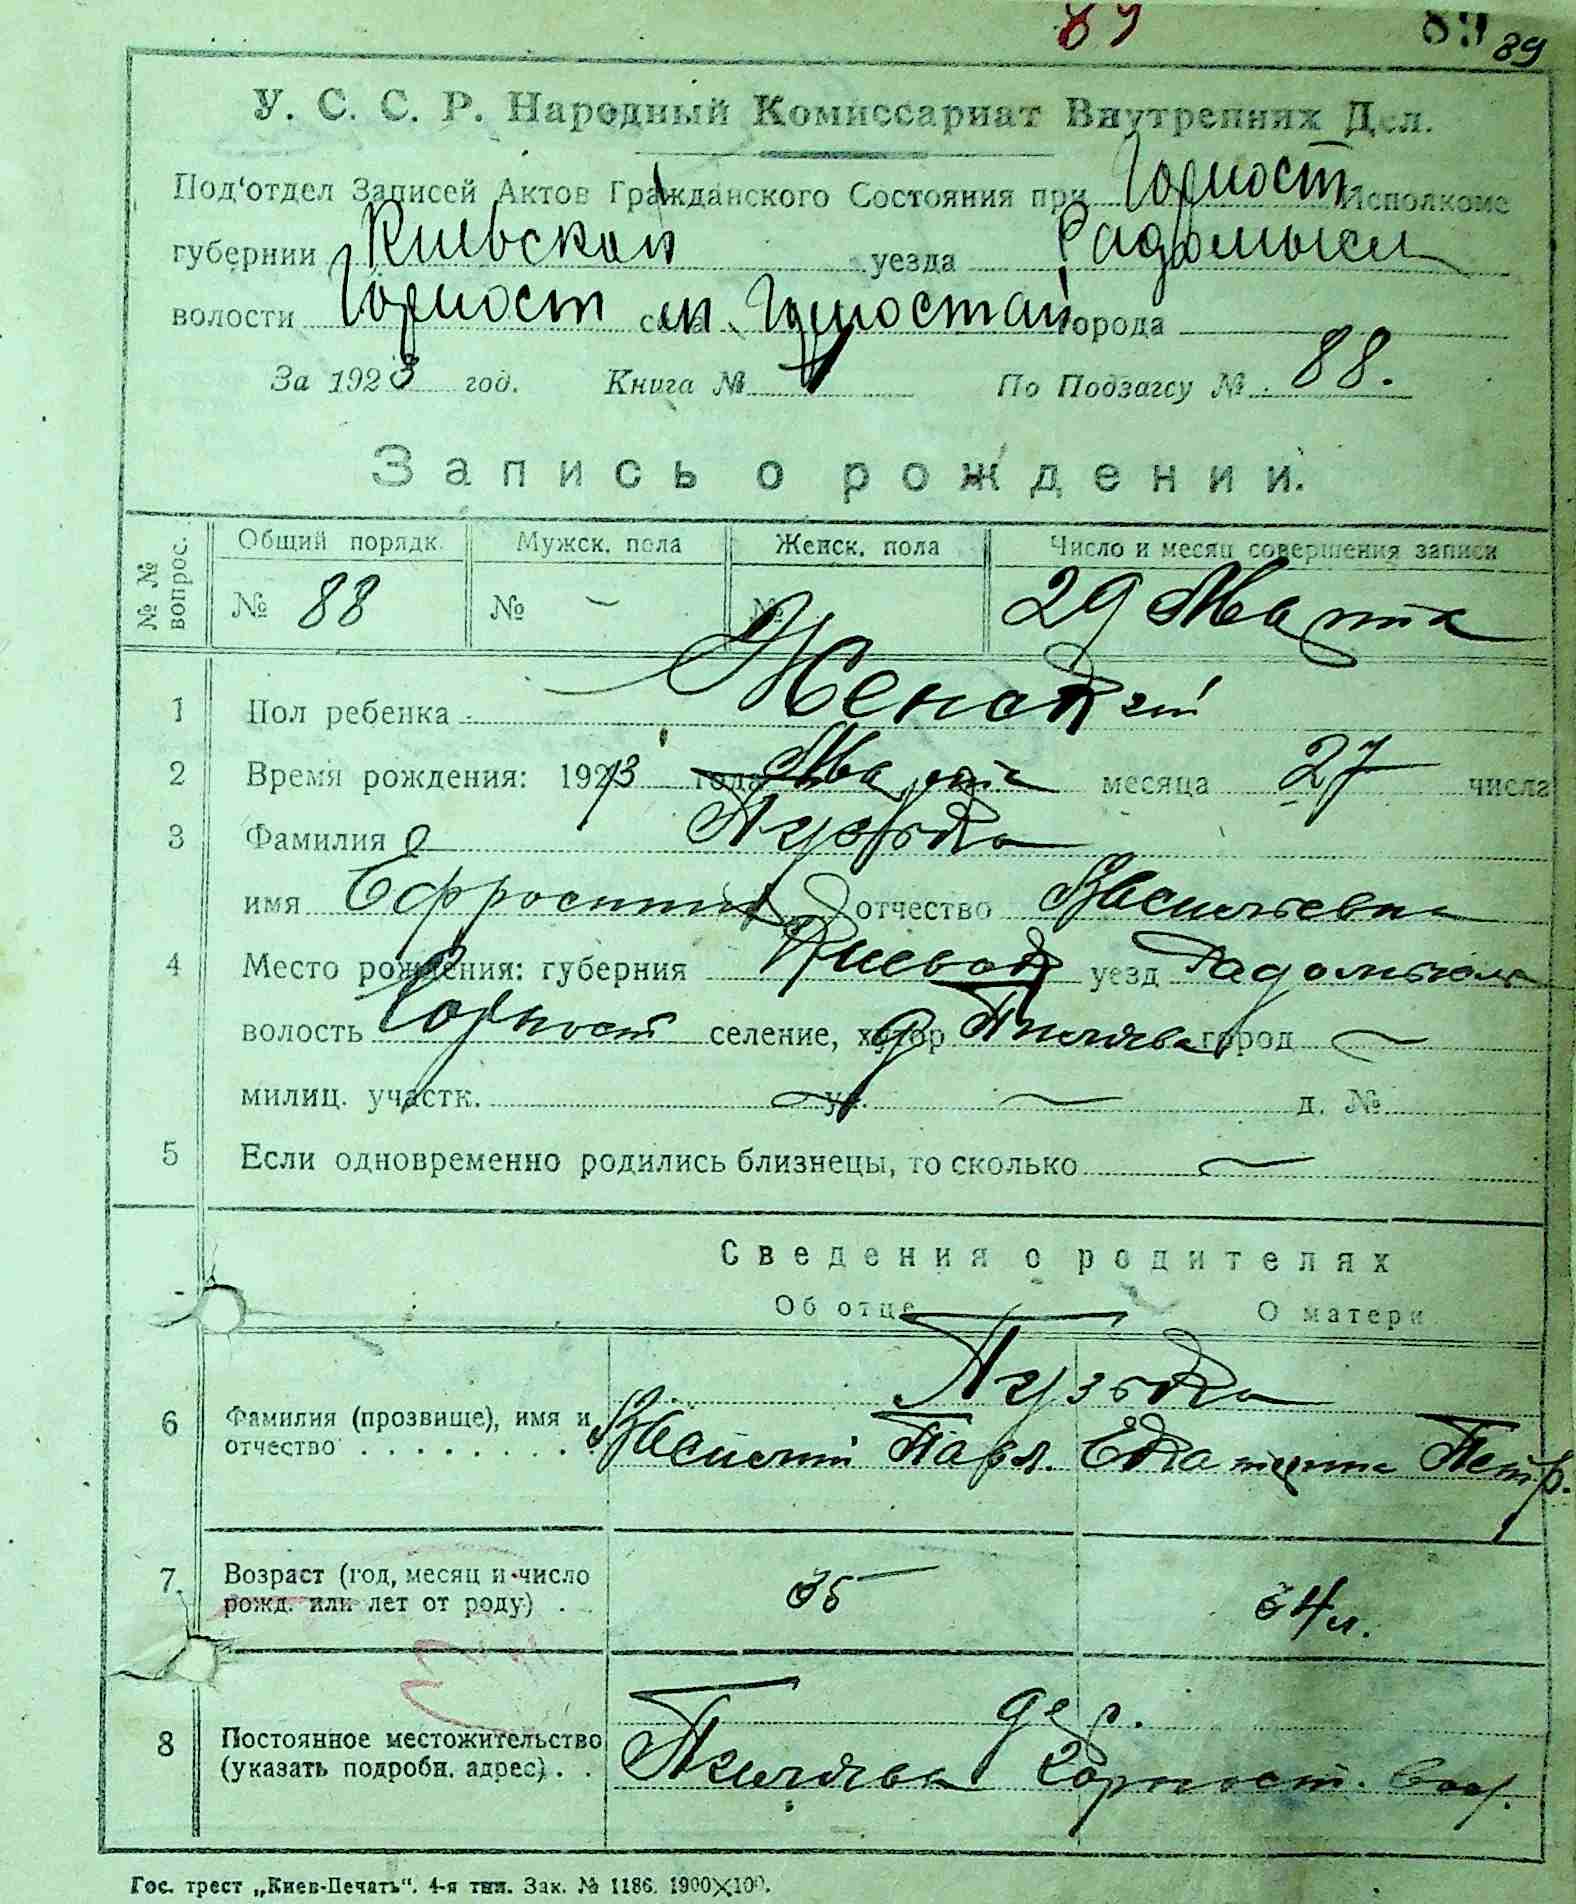 89 89 89
У. С. С. Р. Народный Комиссариат Внутренних Дел.
Под'отдел Записей Актов Гражданского Состояния при Горност Исполкоме
губернии Киевской уезда Радомысл
волости Горност села м. Горностай города
За 1923 год. Книга № 1 По Подзагсу № 88.
Запись о рождении.
№ № вопрос. Общий порядк. Мужск. пола Женск. пола Число и месяц совершения записи
№ 88 № — № 29 Марта
1 Пол ребенка Женский
2 Время рождения: 1923 года Марта месяца 27 числа
3 Фамилия Пузька
имя Ефросиния отчество Васильевна
4 Место рождения: губерния Киевск уезд Радомысл
волость Горност селение, хутор д Пилява город —
милиц. участк. — ул. — д. №
5 Если одновременно родились близнецы, то сколько —
Сведения о родителях
Об отце О матери
Пузька
6 Фамилия (прозвище), имя и отчество Василий Павл. Екатерина Петр.
7. Возраст (год, месяц и число рожд. или лет от роду) 35 34 л.
8 Постоянное местожительство (указать подробн. адрес) дер.
Пилява Горност. вол.
Гос. трест „Киев-Печать“. 4-я тип. Зак. № 1186. 1900×100.